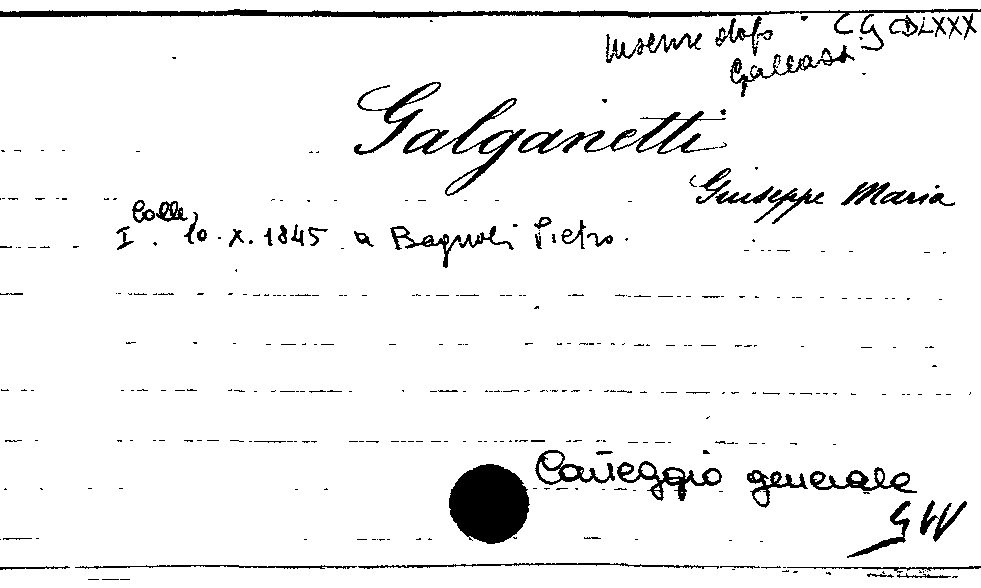 Inserire dopo CG CDLXXX
Galeassi
Galganetti
Giuseppe Maria
Colle,
I. 10. X. 1845 a Bagnoli Pietro.
Carteggio generale